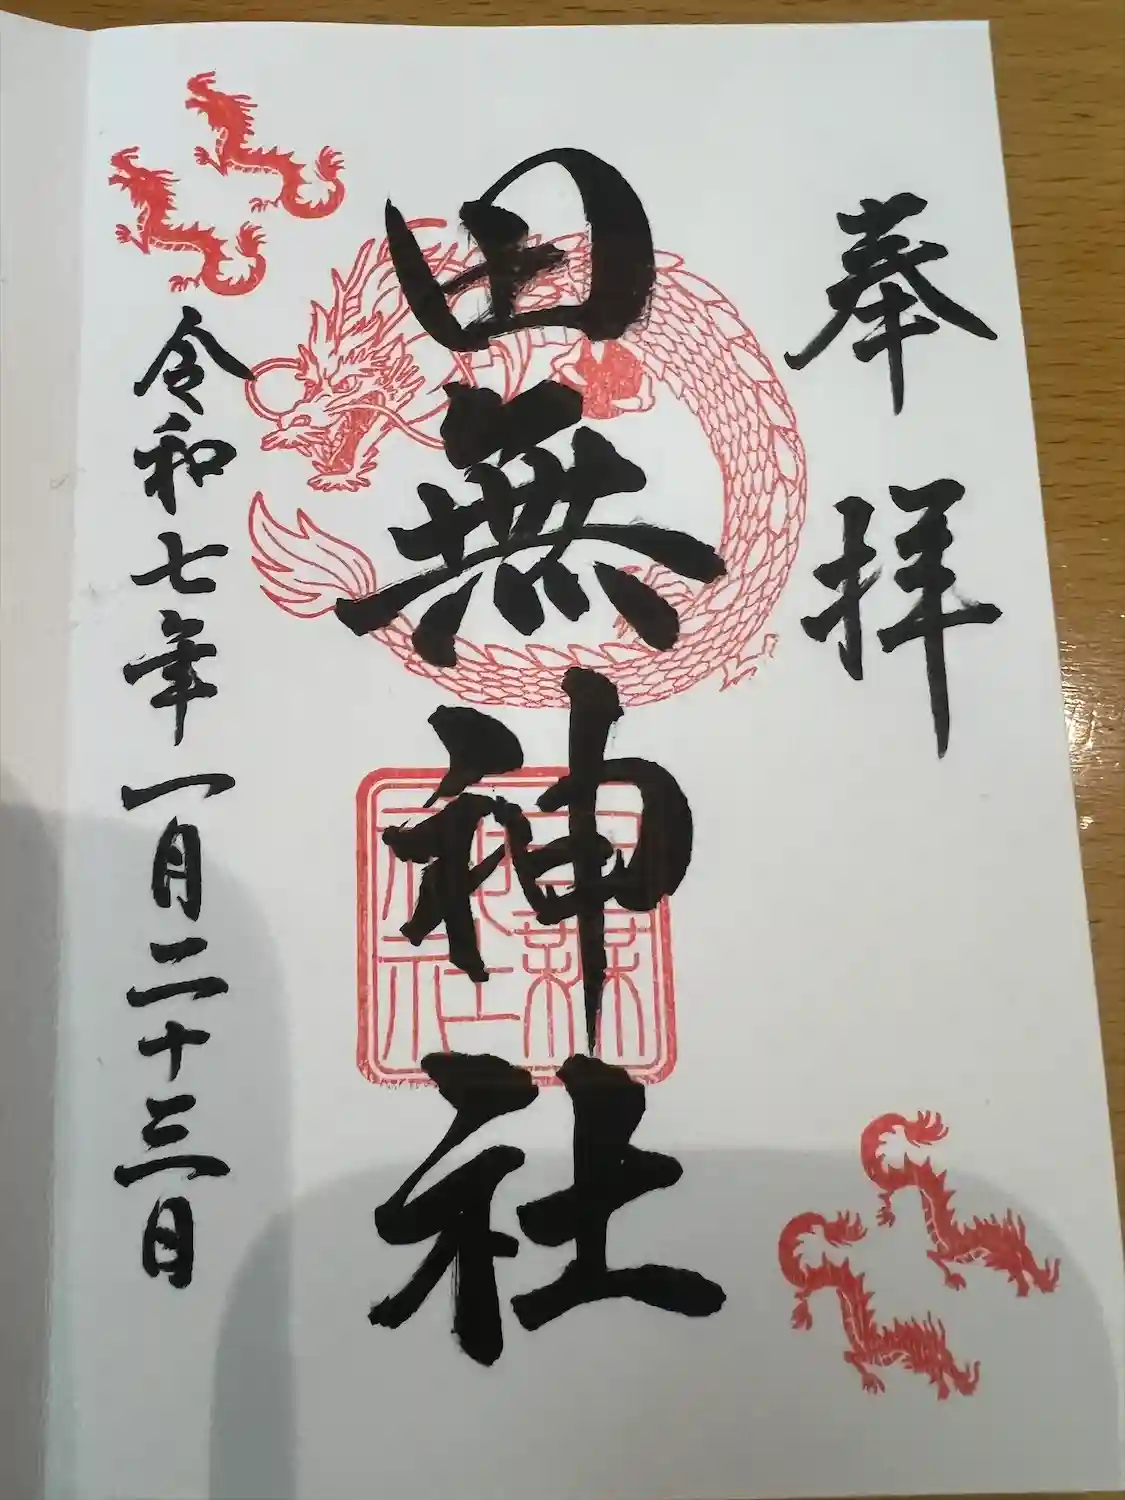 奉拝
田無神社
令和七年一月二十三日
田無神社